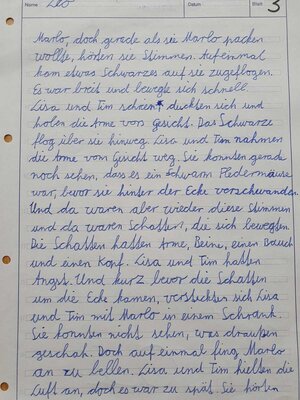 Name Leo Datum Blatt 3
Marlo, doch gerade als sie Marlo packen
wollte, hörten sie Stimmen. Auf einmal
kam etwas Schwarzes auf sie zugeflogen.
Es war breit und bewegte sich schnell.
Lisa und Tim duckten sich und
holen die Arme vors Gesicht. Das Schwarze
flog über sie hinweg. Lisa und Tim nahmen
die Arme vom Gesicht weg. Sie konnten gerade
noch sehen, dass es ein schwarm Fledermäuse
war, bevor sie hinter der Ecke verschwanden.
Und da waren aber wieder diese Stimmen
und da waren Schatten, die sich bewegten.
Die Schatten hatten Arme, Beine, einen Bauch
und einen Kopf. Lisa und Tim hatten
Angst. Und kurz bevor die Schatten
um die Ecke kamen, versteckten sich Lisa
und Tim mit Marlo in einem Schrank.
Sie konnten nicht sehen, was draußen
geschah. Doch auf einmal fing Marlo
an zu bellen. Lisa und Tim hielten die
Luft an, doch es war zu spät. Sie hörten